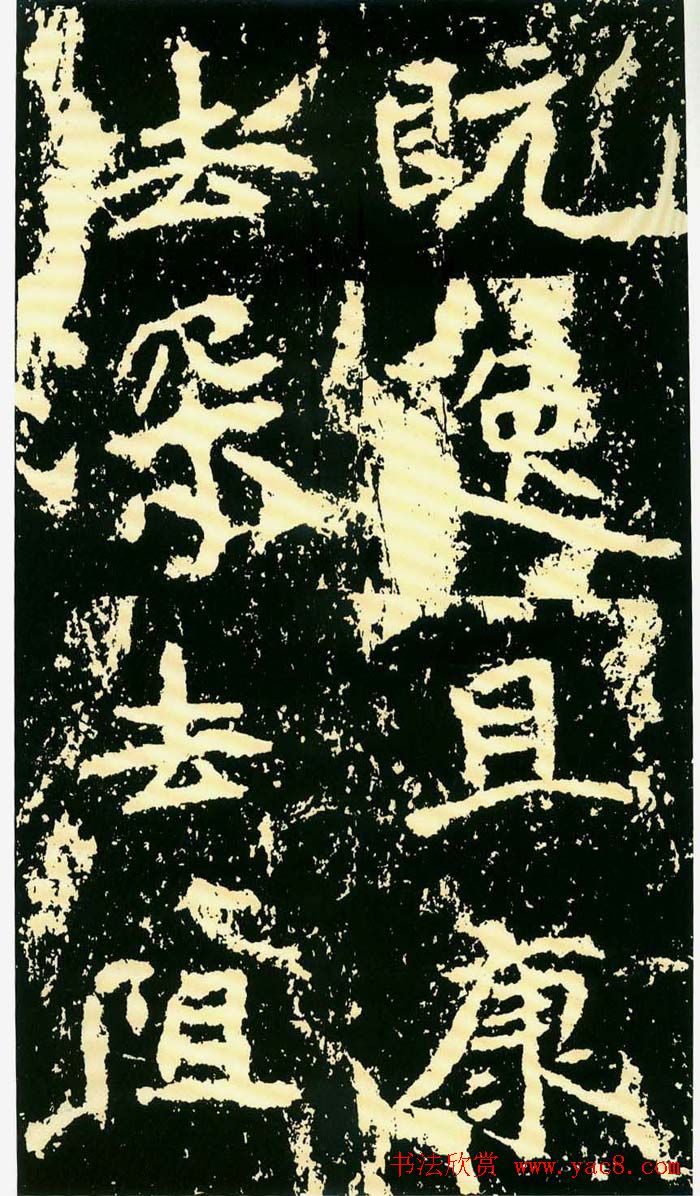 既逸且康
去深去阻
书法欣赏 www.yac8.com